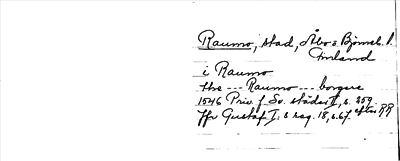 Raumo, stad, Åbo o Björneb. l.
Finland
i Raumo
the --- Raumo --- borgere
1546 Priv. f. Sv. städer II, s. 359
Jfr Gustaf I:s reg. 18, s. 67. efter